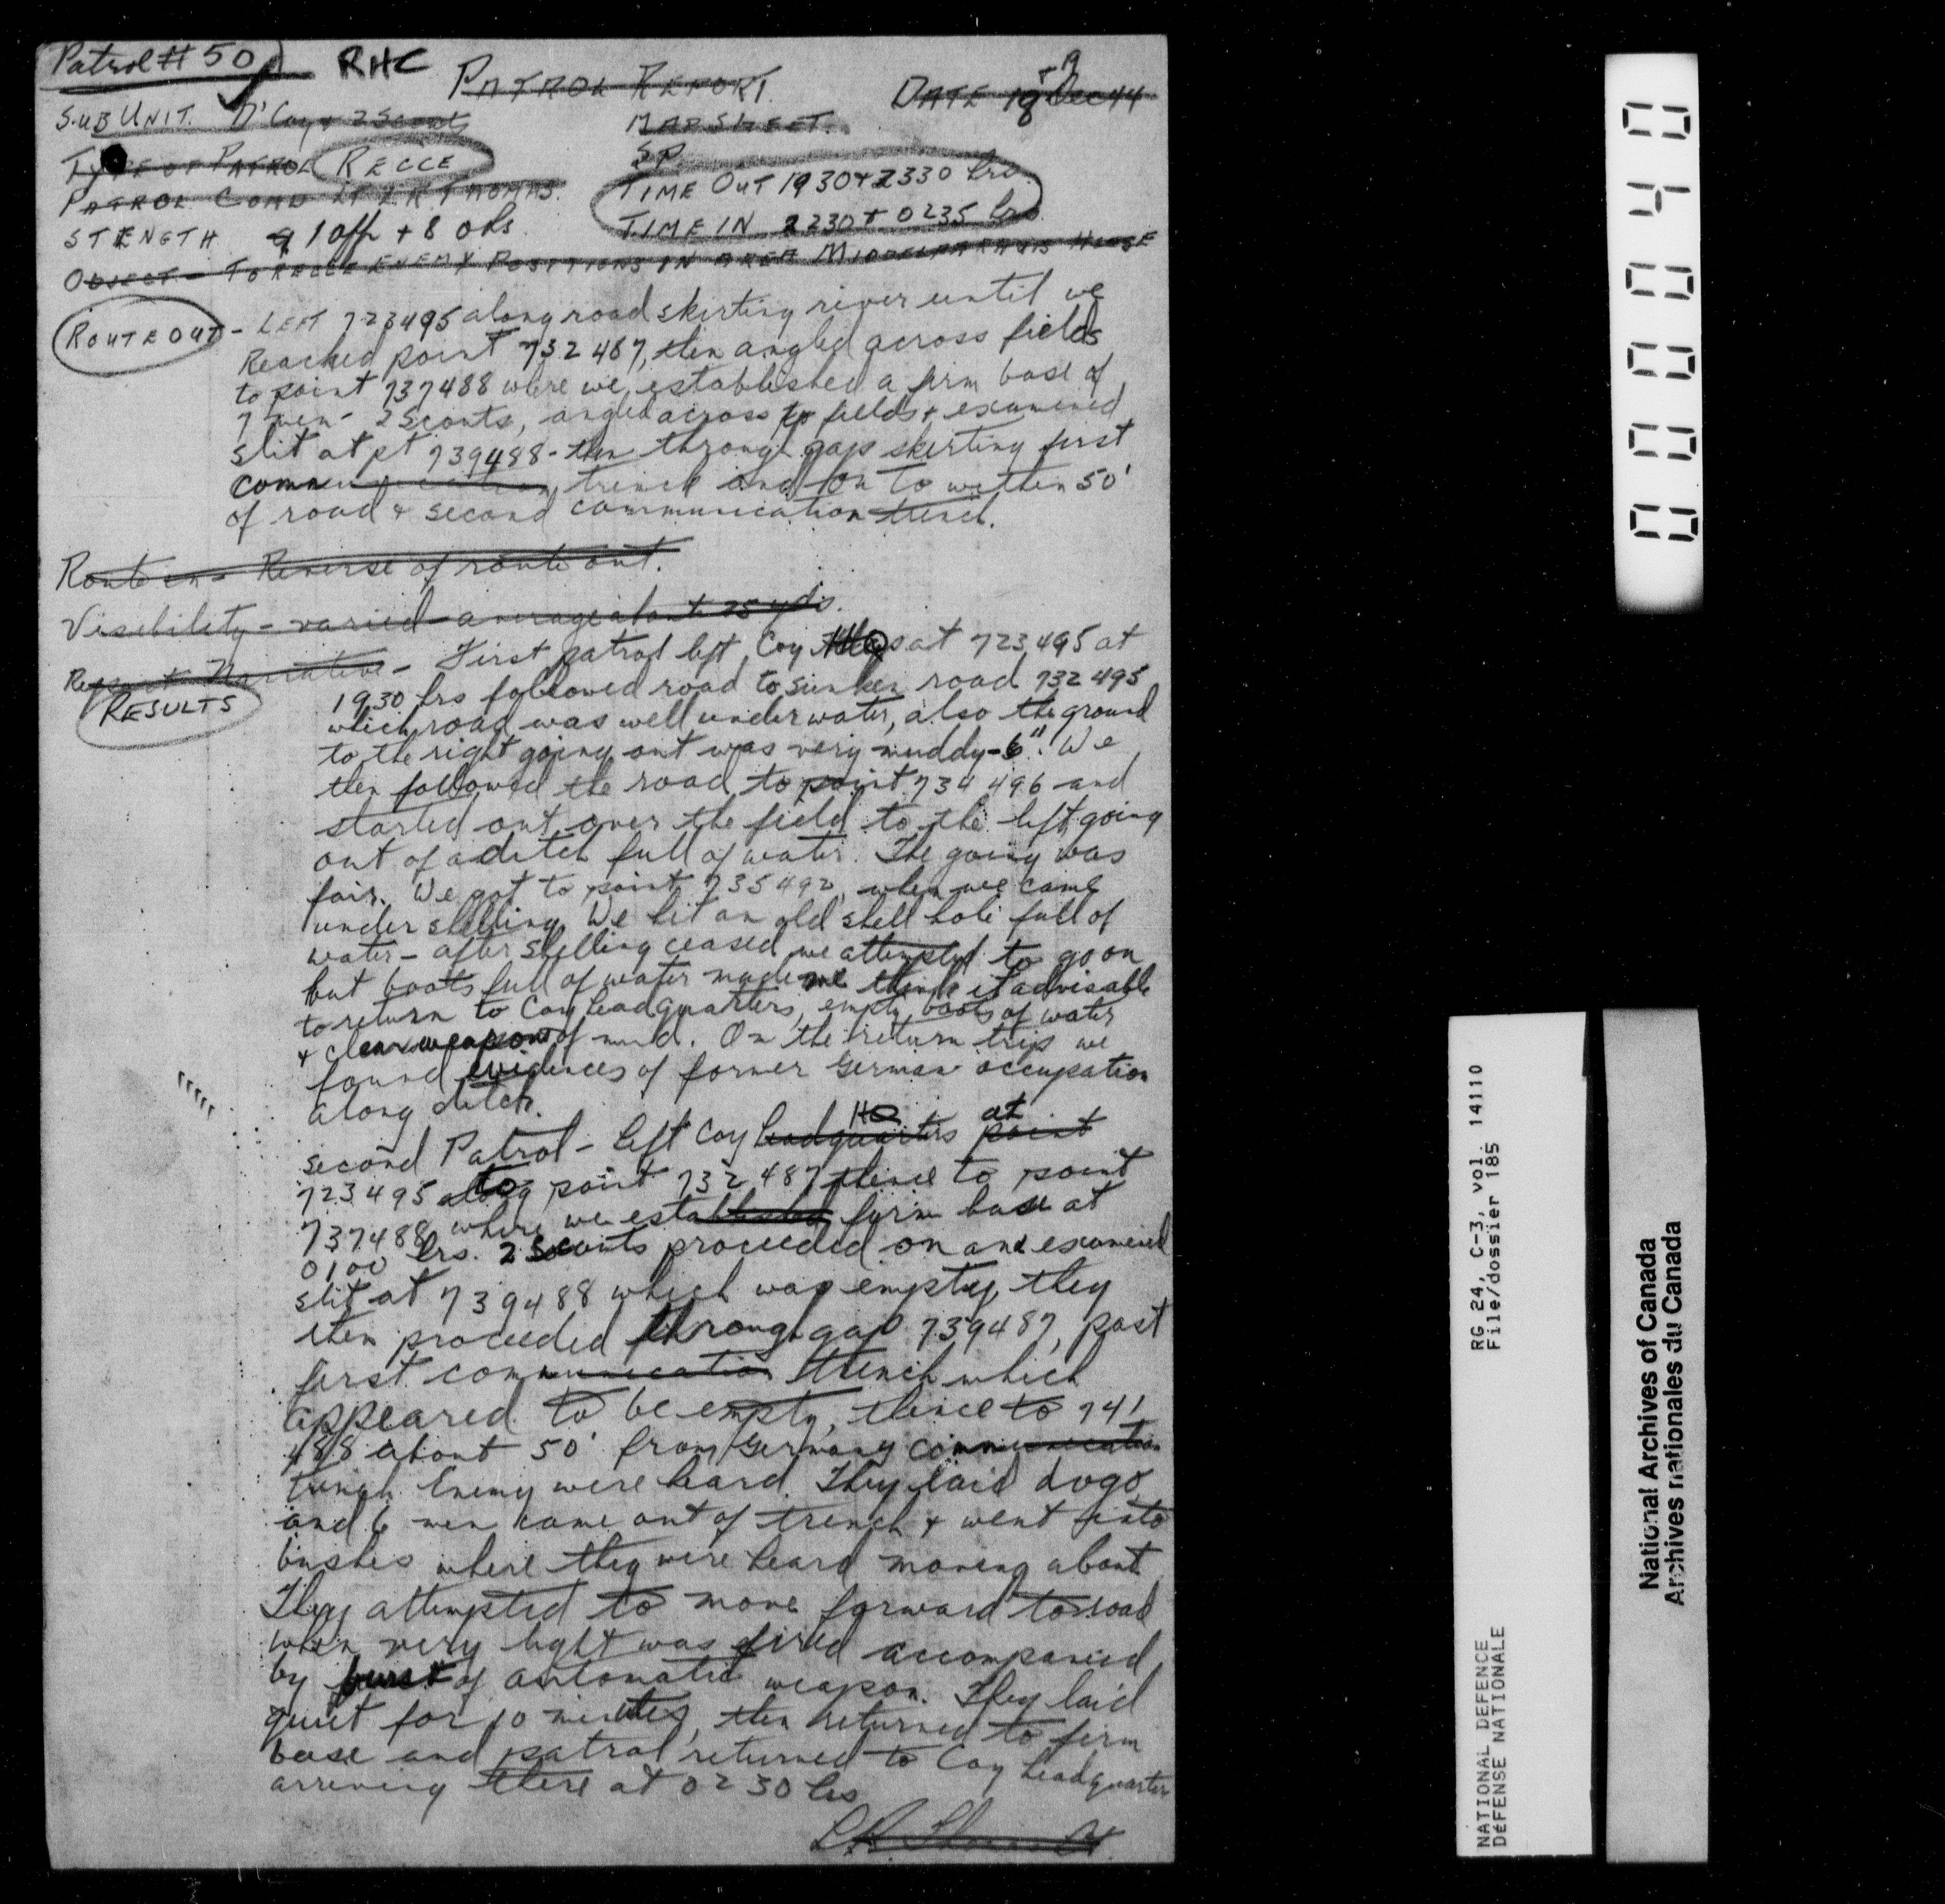 Patrol # 50
RHC
PATROL REPORT.
DATE 18 + 19 Dec 44
SUB UNIT. D' Coy + 2 Scouts
MAP SHEET.
TYPE OF PATROL RECCE
SP
PATROL COMD LT L R THOMAS.
TIME OUT 1930 + 2330 hrs.
STRENGTH 1 Off + 8 ORs.
TIME IN 2230 + 0235 hrs.
OBJECT - TO RECCE ENEMY POSITIONS IN AREA MIDDELAARHUIS HOUSE
ROUTE OUT - LEFT 723495 along road skirting river until we
Reached point 732487, then angled across fields
to point 737488 where we established a firm base of
7 men - 2 Scouts, angled across fields + examined
slit at pt 739488 - then through gap skirting first
communication trench and on to within 50'
of road + second communication trench.
Route in - Reverse of route out.
Visibility - varied average about 25 yds.
Report Narrative - First patrol left Coy HQ at 723495 at
RESULTS
1930 hrs followed road to sunken road 732495
which road was well under water, also the ground
to the right going out was very muddy - 6". We
then followed the road to point 734496 and
started out over the field to the left going
out of a ditch full of water. The going was
fair. We got to point 735492, when we came
under shelling. We hit an old shell hole full of
water - after shelling ceased we attempted to go on
but boots full of water made me think it advisable
to return to Coy headquarters, empty boots of water
+ clean weapons of mud. On the return trip we
found evidences of former German occupation
along ditch.
Second Patrol - left Coy headquarters HQ point at
723495 along to point 732487 thence to point
737488 where we established firm base at
0100 hrs. 2 Scouts proceeded on and examined
slit at 739488 which was empty, they
then proceeded through gap 739487, past
first communication trench which
appeared to be empty, thence to 741
488 about 50' from Germany communication
trench. Enemy were heard. They laid dogo
and 6 men came out of trench + went into
bushes where they were heard moving about
They attempted to move forward to road
when very light was fired accompanied
by burst of automatic weapon. They laid
quiet for 10 minutes, then returned to firm
base and patrol returned to Coy headquarters
arriving there at 0230 hrs
00040
RG 24, C-3, vol. 14110
File/dossier 185
NATIONAL DEFENCE
DÉFENSE NATIONALE
National Archives of Canada
Archives nationales du Canada